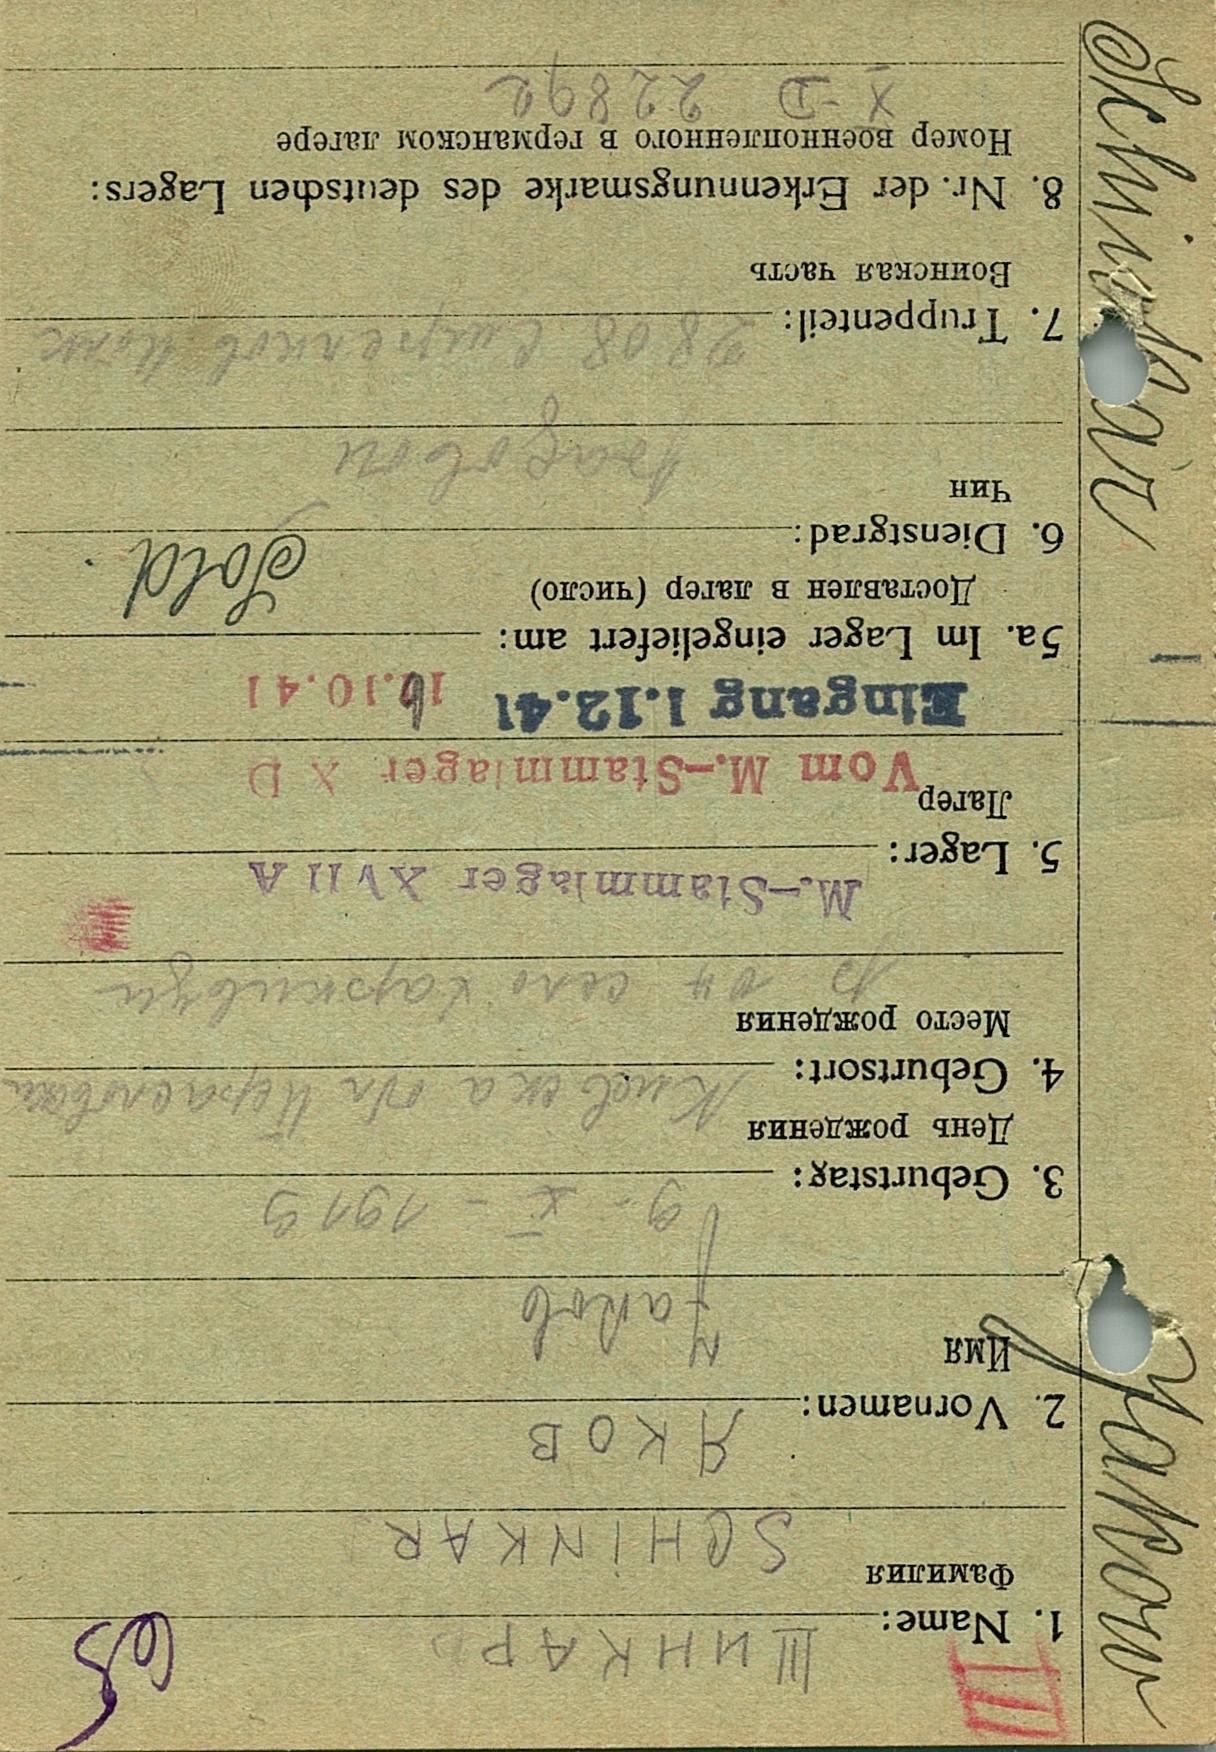 III
65
ШИНКАРЬ
1. Name:
Фамилия
SCHINKAR
ЯКОВ
2. Vornamen:
Имя
Jakob
9 - X - 1919
3. Geburtstag:
День рождения
4. Geburtsort:
Место рождения
село
M.-Stammlager XVII A
5. Lager:
Лагер
Vom M.-Stammlager X D
Eingang 1.12.41
10.41
5a. Im Lager eingeliefert am:
Доставлен в лагер (число)
Sold.
6. Dienstgrad:
Чин
рядовой
2808
7. Truppenteil:
Воинская часть
8. Nr. der Erkennungsmarke des deutschen Lagers:
Номер военнопленного в германском лагере
X-D 22892
Schinkar
Jakow